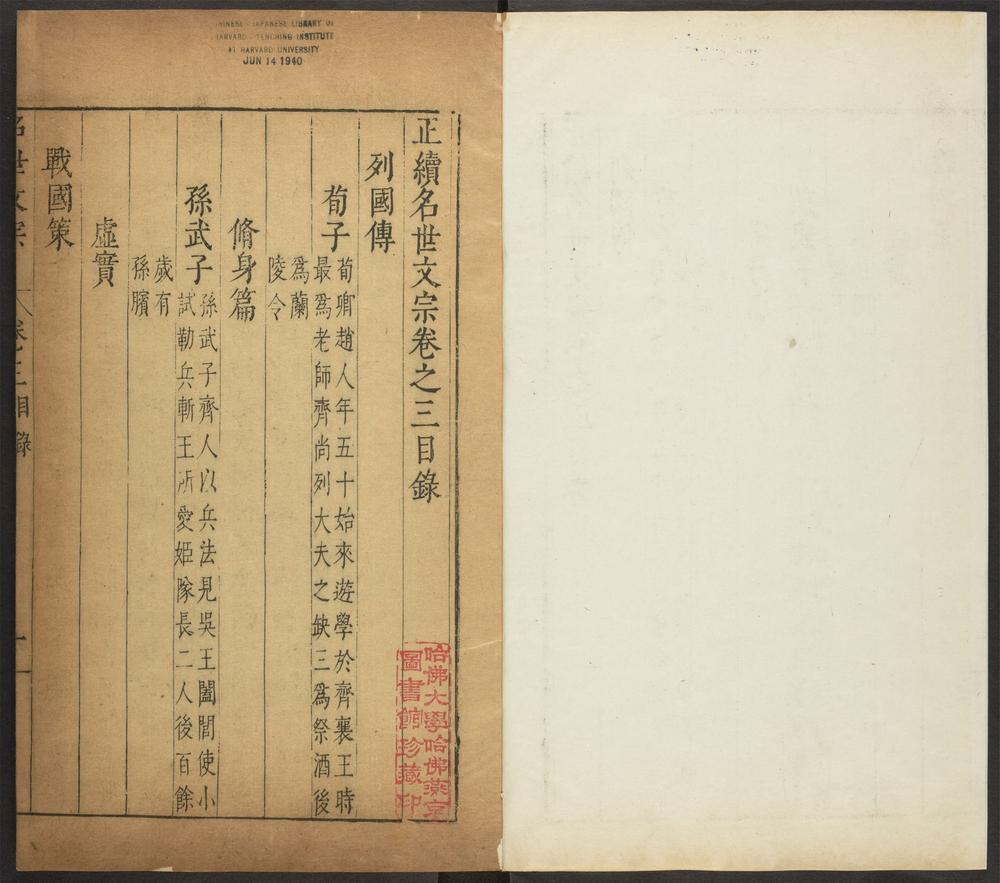 CHINESE - JAPANESE LIBRARY OF
HARVARD - YENCHING INSTITUTE
AT HARVARD UNIVERSITY
JUN 14 1940
正續名世文宗卷之三目錄
列國傳
荀子
荀卿趙人年五十始來遊學於齊襄王時
最爲老師齊尚列大夫之缺三爲祭酒後
爲蘭
陵令
脩身篇
孫武子
孫武子齊人以兵法見吳王闔閭使小
試勒兵斬王所愛姬隊長二人後百餘
歲有
孫臏
虛實
戰國策
名世文宗
卷三目錄
一
哈佛大學哈佛燕京
圖書館珍藏印